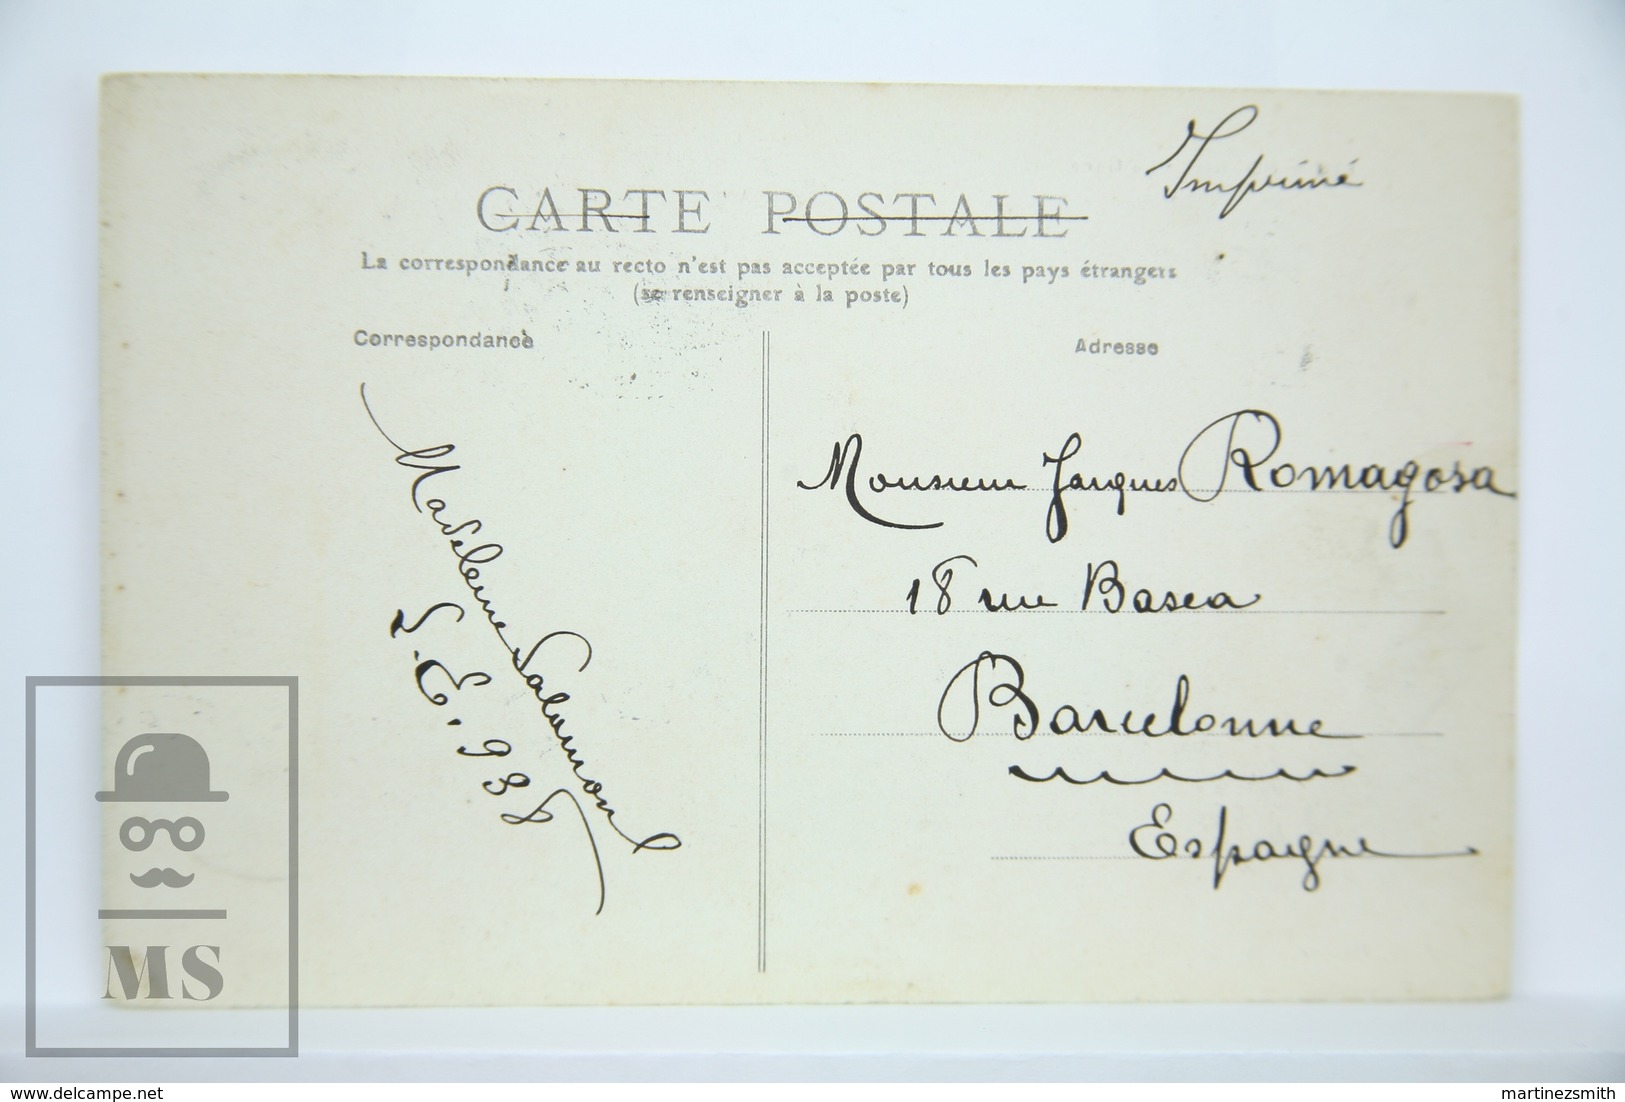 Imprimé
CARTE POSTALE
La correspondance au recto n'est pas acceptée par tous les pays étrangers
(se renseigner à la poste)
Correspondance
Adresse
Madeleine Salomond
S.E. 938
Monsieur Jacques Romagosa
18 rue Basea
Barcelonne
Espagne
MS
www.delcampe.net
martinezsmith